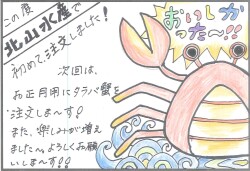 この度
北山水産で
初めて注文しました！
次回は、
お正月用にタラバ蟹を
注文しま〜す！
また、楽しみが増え
ました〜。よろしくお願
いしま〜す!!
おいしか
った〜!!